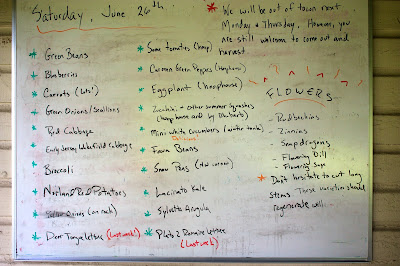 Saturday, June 26th
* Green Beans
* Blueberries
* Carrots (lots!)
* Green Onions/Scallions
* Red Cabbage
* Early Jersey Wakefield Cabbage
* Broccoli
* Norland Red Potatoes
* (on rack)
* Deer Tongue Lettuce (Last week!)
* Some tomatoes (hoop)
* Carmen Green Peppers (Hoophouse)
* Eggplant (hoophouse)
* Zucchini + other summer squashes
(hoophouse and by rhubarb)
* Mini-white cucumbers (water tank)
Delicious
* Fava Beans
* Snow Peas
* Lacinato Kale
* Sylvetta Arugula
* Plato 2 Romaine Lettuce
(Last week!)
* We will be out of town next
Monday + Thursday. However, you
are still welcome to come out and
harvest
FLOWERS
- Rudbeckias
- Zinnias
- Snapdragons
- Flowering Dill
- Flowering Sage
* Don't hesitate to cut long
stems. These varieties should
regenerate well.